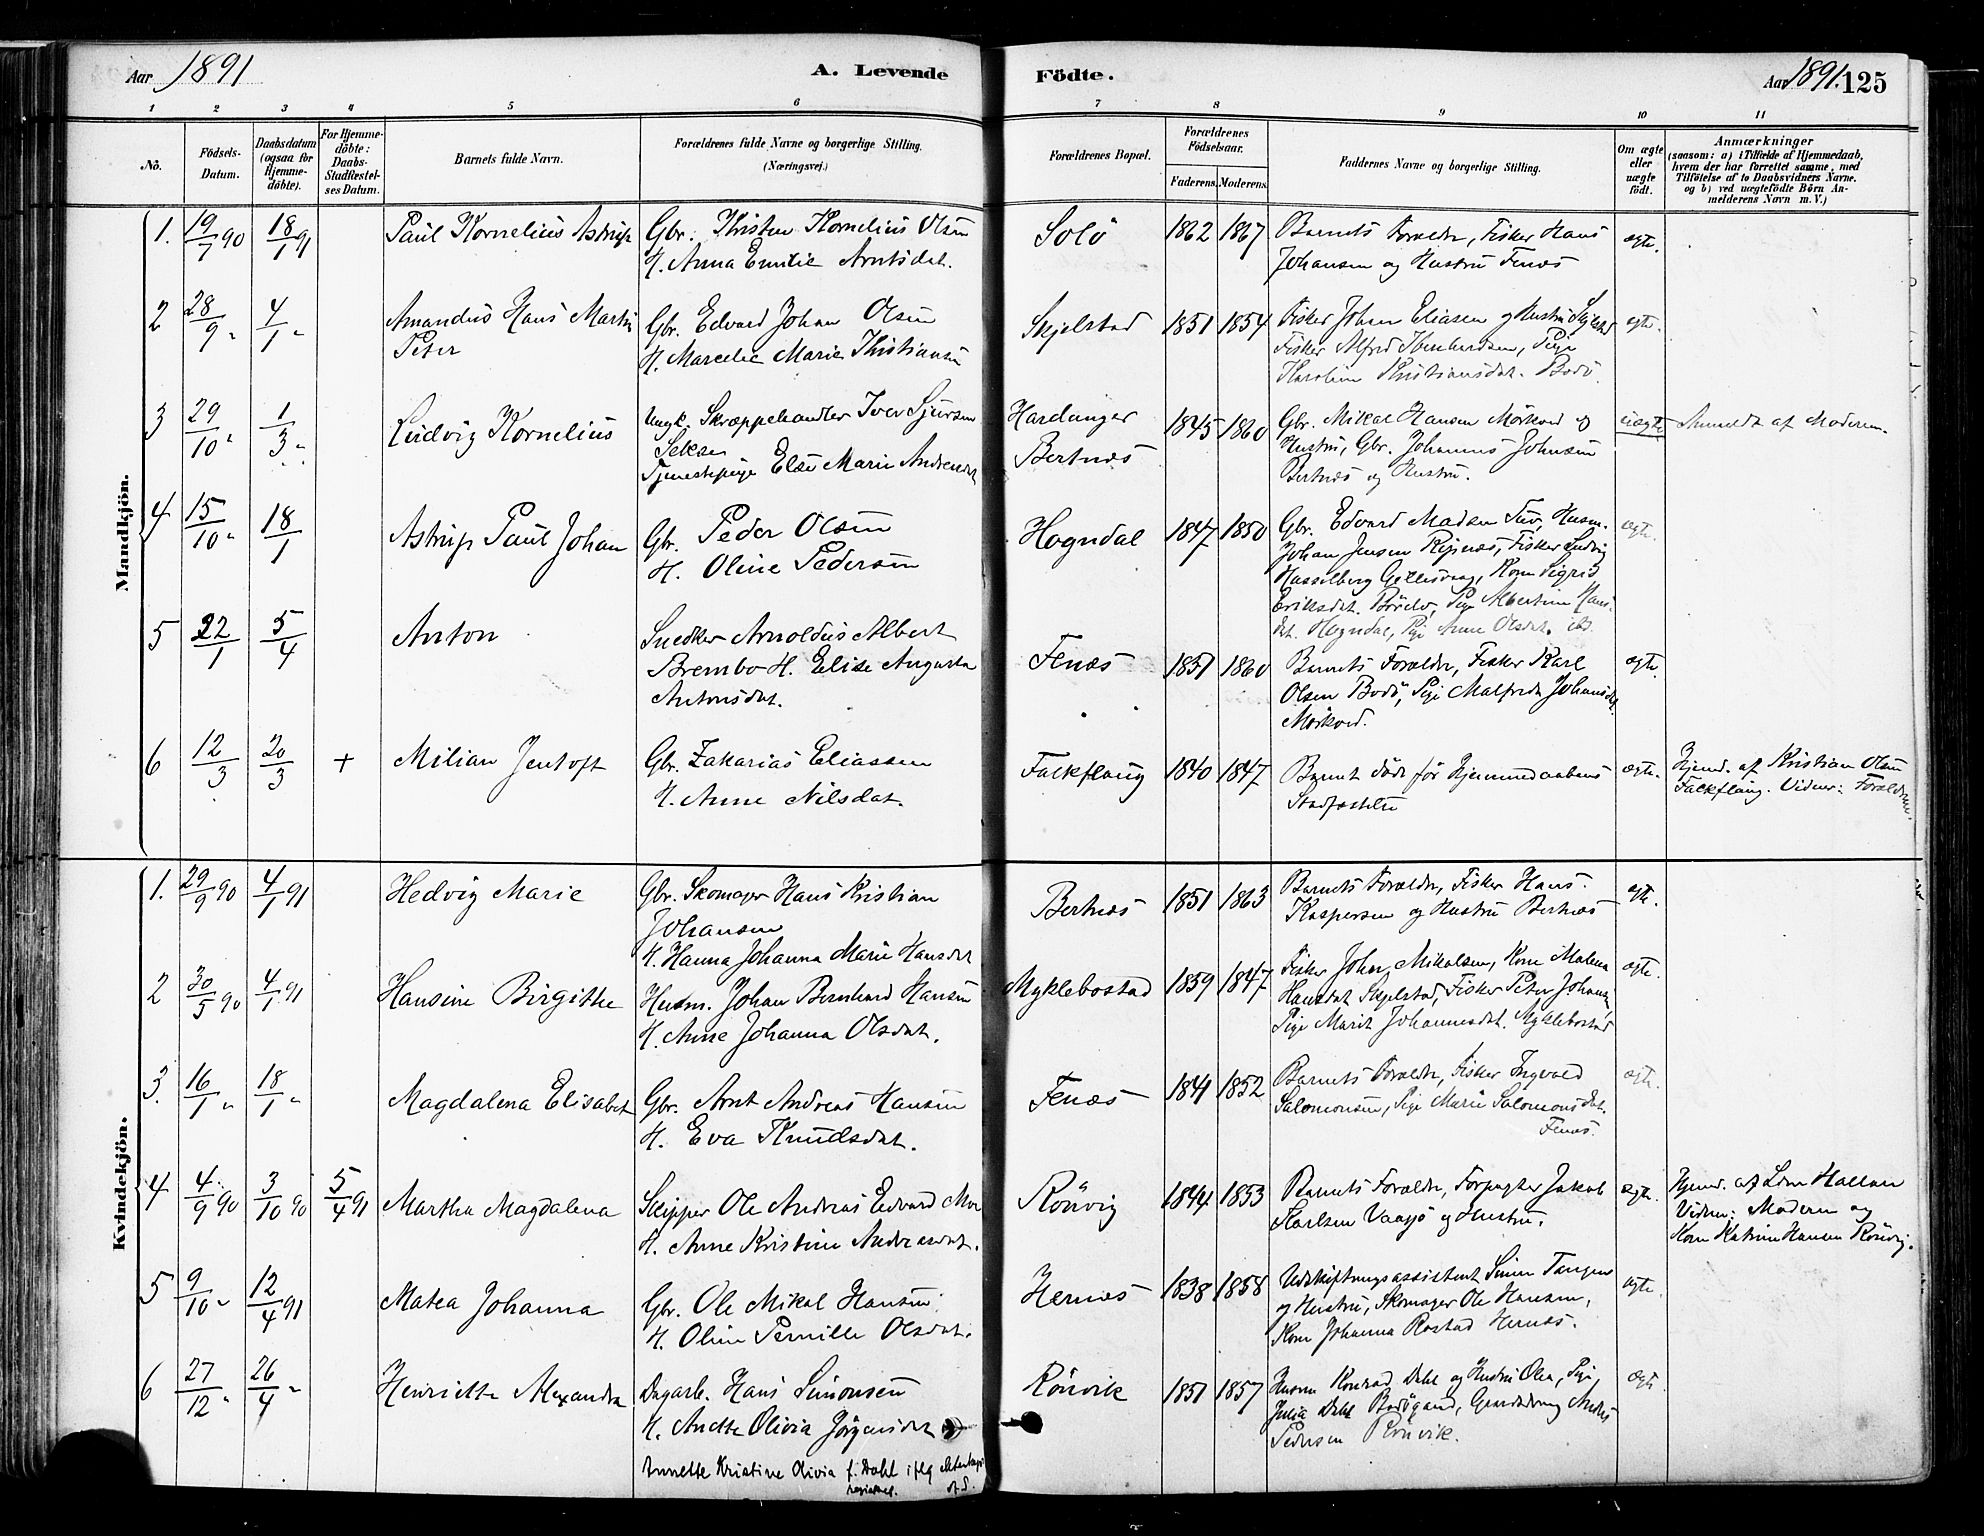 Aar 1891
A. Levende
Födte.
Aar 1891. 125
1 2 3 4 5 6 7 8 9 10 11
Nö.
Födsels-Datum.
Daabsdatum (ogsaa for Hjemme-döbte).
For Hjemme-döbte: Daabs-Stadfæstel-ses Datum.
Barnets fulde Navn.
Forældrenes fulde Navne og borgerlige Stilling.
(Næringsvej.)
Forældrenes Bopæl.
Forældrenes Födselsaar.
Faderens. Moderens.
Faddernes Navne og borgerlige Stilling.
Om ægte eller uægte födt.
Anmærkninger
(saasom: a) i Tilfælde af Hjemmedaab,
hvem der har forrettet samme, med
Tilföielse af to Daabsvidners Navne,
og b) ved uægtefödte Börn An-
melderens Navn m. V.)
Mandkjön.
1. 19/7 90 18/1 91 Paul Kornelius Astrup
Gbr. Kristen Kornelius Olsen
H. Anna Emilie Arntsdat.
Solö 1862 1867
Barnets Forældre, Fisker Hans
Johansen og Hustru Fenæs
ægte.
2 28/9 " 4/1 " Amandus Hans Martin
Peter
Gbr. Edvard Johan Olsen
H. Marcelie Marie Kristiansen
Skjelstad 1851 1854
Fisker Johan Eliasen og Hustru Skjelstad
Fisker Alfred Ibenhardsen, Pige
Karoline Kristiansdat. Bodö.
ægte.
3 29/10 " 1/3 " Ludvig Kornelius
Ungk. Skræppehandler Iver Sjursen
Sekse
Tjenestepige Else Marie Andreasdat
Hardanger
Bertnæs
1845 1860
Gbr. Mikal Hansen Mörkved og
Hustru, Gbr. Johannes Johnsen
Bertnæs og Hustru.
uægte
Anmeldt af Moderen.
4 15/10 " 18/1 Astrup Paul Johan
Gbr. Peder Olsen
H. Oline Pedersen
Hogndal 1847 1850
Gbr. Edvard Madsen Tuv, Husm.
Johan Jensen Ripnæs, Fisker Ludvig
Hasselberg Gillesvaag, Kone Sigrid
Eriksdat. Börelv, Pige Albertine Hans-
dat. Hogndal, Pige Anne Olsdat. ibd.
ægte.
5 22/1 5/4 Anton
Snedker Arnoldus Albert
Brembo H. Elise Augusta
Antonsdat.
Fenæs 1851 1860
Barnets Forældre, Fisker Karl
Olsen Bodö, Pige Malfrida Johansdat.
Mörkved.
ægte.
6 12/3 20/3 + Milian Jentoft
Gbr. Zakarias Eliassen
H. Anne Nilsdat.
Falkflaug 1840 1847
Barnet döde för Hjemmedaabens
Stadfæstelse
ægte.
Hjemd. af Kristian Olsen
Falkflaug. Vidner: Forældrene.
Kvindekjön.
1. 29/9 90 4/1 91 Hedvig Marie
Gbr. Skomager Hans Kristian
Johansen
H. Hanna Johanna Marie Hansdat
Bertnæs 1851 1863
Barnets Forældre, Fisker Hans
Kaspersen og Hustru Bertnæs
ægte.
2 30/5 90 4/1 91 Hansine Birgitte
Husm. Johan Bernhard Hansen
H. Anne Johanna Olsdat.
Myklebostad 1859 1847
Fisker Johan Mikalsen, Kone Malena
Hansdat Skjelstad, Fisker Peter Johansen
Pige Marit Johannesdat. Myklebostad
ægte.
3. 16/1 " 18/1 " Magdalena Elisabet
Gbr. Arnt Andreas Hansen
H. Eva Knudsdat.
Fenæs 1841 1852
Barnets Forældre, Fisker Ingvald
Salomonsen, Pige Marie Salomonsdat.
Fenæs.
ægte.
4 4/9 90 3/10 90 5/4 91 Martha Magdalena
Skipper Ole Andreas Edvard Moe
H. Anne Kristine Andreasdat.
Rönvig 1844 1853
Barnets Forældre, Forpagter Jakob
Karlsen Vaagö og Hustru.
ægte.
Hjemd. af Lrm Hansen
Vidner: Moderen og
Kone Katrine Hansen Rönvig.
5 9/10 " 12/4 91 Matea Johanna
Gbr. Ole Mikal Hansen
H. Oline Pernille Olsdat.
Hernæs 1838 1858
Udskiftningsassistent Simen Tangen
og Hustru, Skomager Ole Hansen,
Kone Johanna Rostad Hernæs.
ægte.
6 27/12 " 26/4 " Henriette Alexandra
Dagarb. Hans Simonsen
H. Anette Olivia Jörgensdat
Annette Kristine Olivia f. Dahl iflg ekteskaps
registret. af S.
Rönvik 1851 1857
Husm Konrad Dahl og Hustru Olea, Pige
Julia Dahl Bodögaard, Gaarddreng Anders
Pedersen Rönvik.
ægte